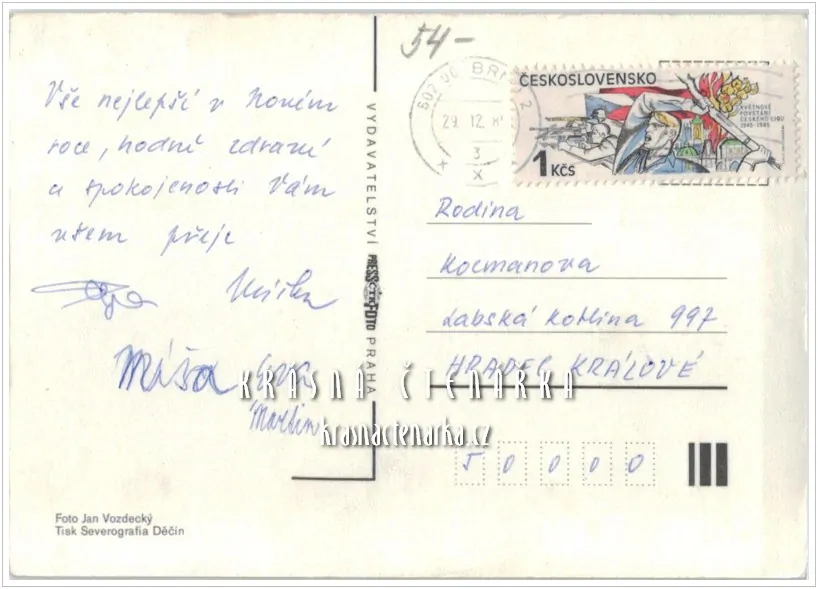 54-
602 00 BRNO 2
29. 12. 8
3
x x
ČESKOSLOVENSKO
KVĚTNOVÉ
POVSTÁNÍ
ČESKÉHO LIDU
1945-1985
1 KČS
Vše nejlepší v Novém
roce, hodně zdraví
a spokojenosti Vám
všem přeje
Míša
Eva
Martin
VYDAVATELSTVÍ PRESSFOTO PRAHA
Rodina
Kocmanova
Labská kotlina 997
HRADEC KRÁLOVÉ
5 0 0 0 0
KRÁSNÁ ČTENÁRKA
krasnactenarka.cz
Foto Jan Vozdecký
Tisk Severografia Děčín